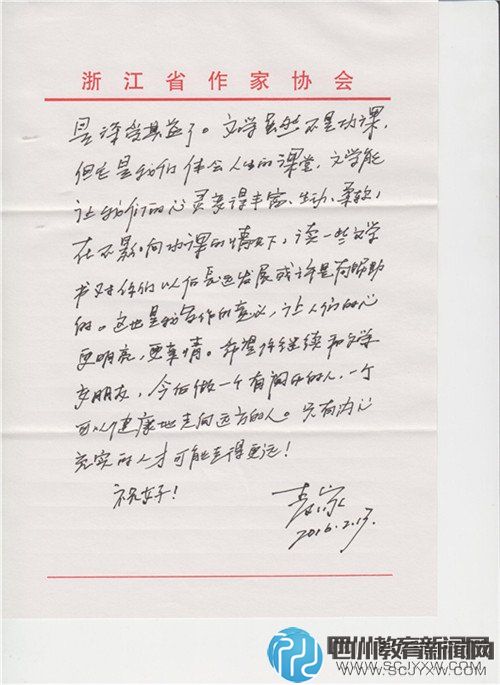 浙江省作家协会
是深受其益了。文学虽然不是功课，
但它是我们体会人生的课堂，文学能
让我们的心灵变得丰富、生动、柔软，
在不影响功课的情况下，读一些文学
书对你们以后长远发展或许是有帮助
的。这也是我写作的意义，让人们的心
更明亮，更真情。希望你继续和文学
交朋友，今后做一个有调的人，一个
可以健康地走向远方的人。只有内心
充实的人才可能走得更远！
祝好！
麦家
2016.2.17.
四川教育新闻网
WWW.SCJYXW.COM